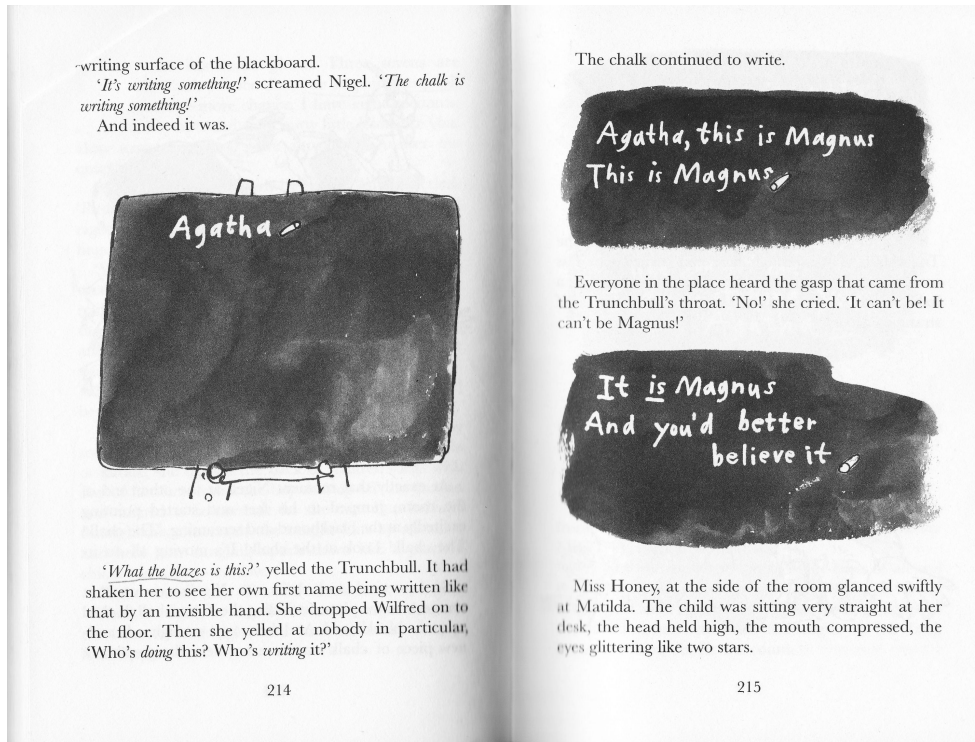 writing surface of the blackboard.
‘It’s writing something!’ screamed Nigel. ‘The chalk is
writing something!’
And indeed it was.
Agatha
‘What the blazes is this?’ yelled the Trunchbull. It had
shaken her to see her own first name being written like
that by an invisible hand. She dropped Wilfred on to
the floor. Then she yelled at nobody in particular,
‘Who’s doing this? Who’s writing it?’
214
The chalk continued to write.
Agatha, this is Magnus
This is Magnus
Everyone in the place heard the gasp that came from
the Trunchbull’s throat. ‘No!’ she cried. ‘It can’t be! It
can’t be Magnus!’
It is Magnus
And you'd better
believe it
Miss Honey, at the side of the room glanced swiftly
at Matilda. The child was sitting very straight at her
desk, the head held high, the mouth compressed, the
eyes glittering like two stars.
215